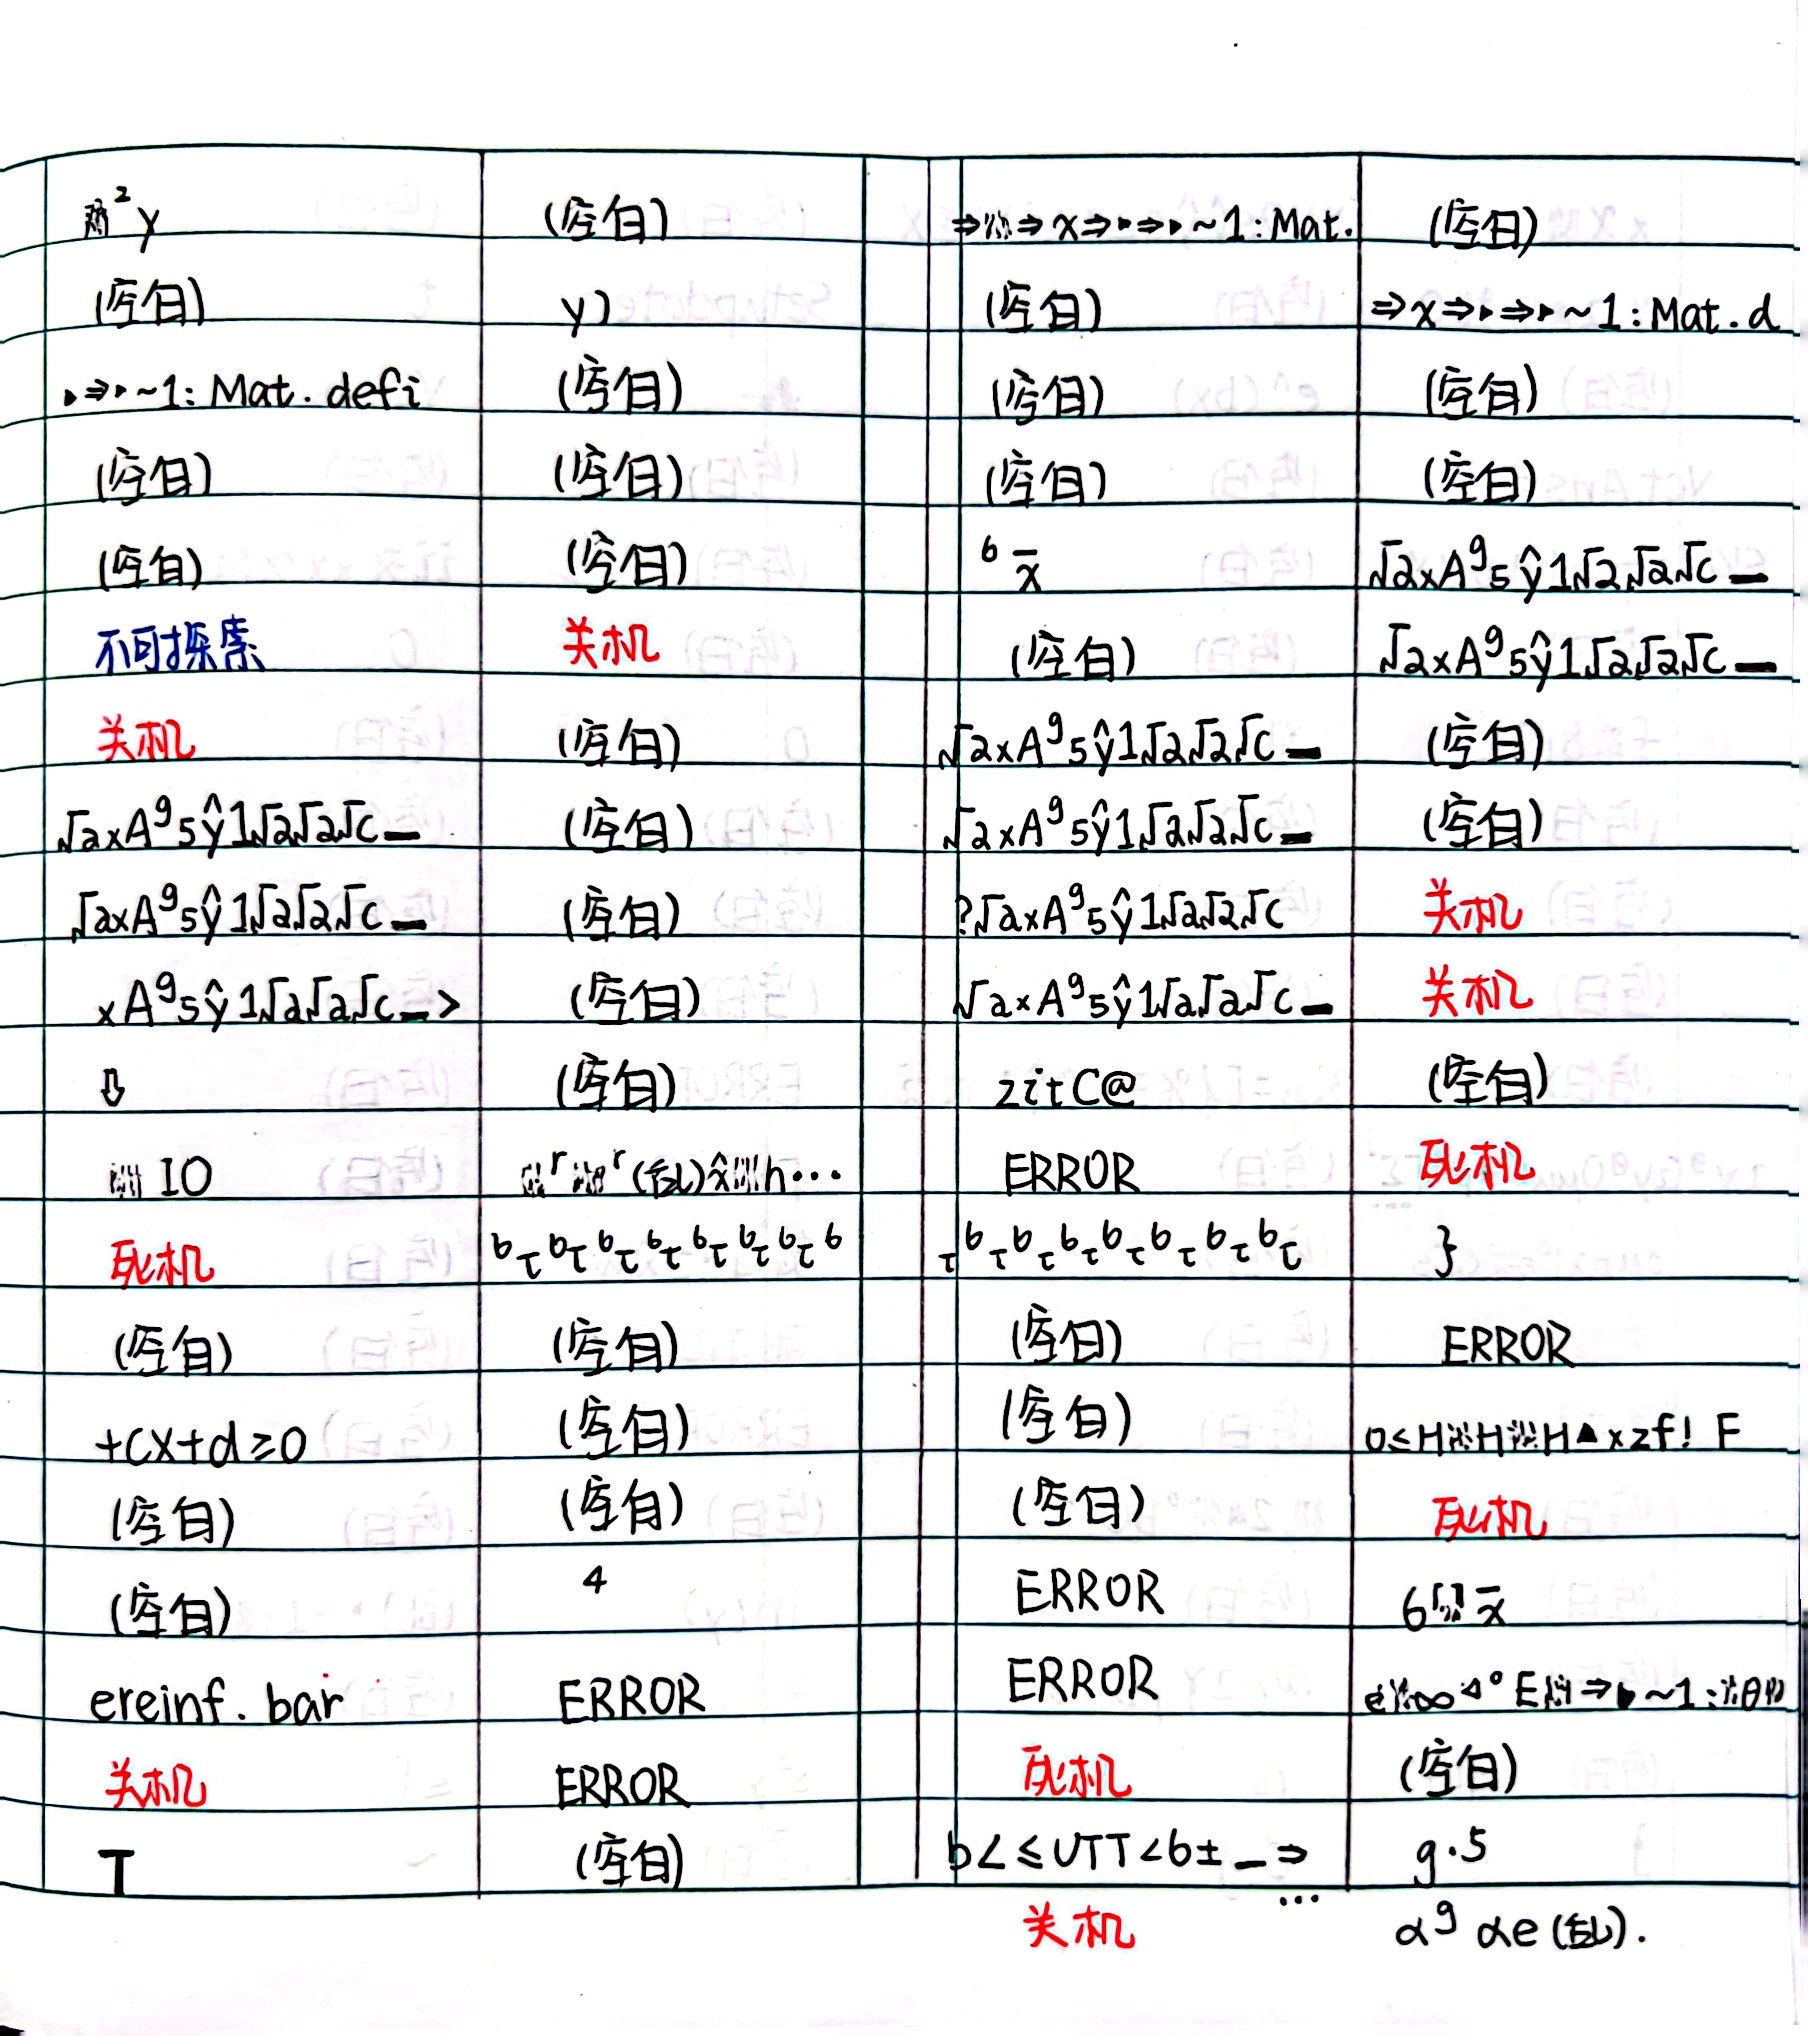 ² y (空白) ⇒ ⇒ x ⇒ ▸ ⇒ ▸ ~1: Mat. (空白)
(空白) y) (空白) ⇒ x ⇒ ▸ ⇒ ▸ ~1: Mat. d
▸ ⇒ ▸ ~1: Mat. defi (空白) (空白) (空白)
(空白) (空白) (空白) (空白)
(空白) (空白) ⁶ x̄ √2xA⁹5ŷ1√2√2√c –
不可探索 关机 (空白) √2xA⁹5ŷ1√2√2√c –
关机 (空白) √2xA⁹5ŷ1√2√2√c – (空白)
√2xA⁹5ŷ1√2√2√c – (空白) √2xA⁹5ŷ1√2√2√c – (空白)
√2xA⁹5ŷ1√2√2√c – (空白) ?√2xA⁹5ŷ1√2√2√c 关机
xA⁹5ŷ1√2√2√c – > (空白) √2xA⁹5ŷ1√2√2√c – 关机
⇩ (空白) zitC@ (空白)
IO ʳ ʳ (乱) x̂ h… ERROR 死机
死机 ᵇτᵇτᵇτᵇτᵇτᵇτᵇτᵇ τᵇτᵇτᵇτᵇτᵇτᵇτᵇτ }
(空白) (空白) (空白) ERROR
+cx+d≥0 (空白) (空白) 0≤H H H▲xzf! F
(空白) (空白) (空白) 死机
(空白) ⁴ ERROR 6 x̄
ereinf. bar ERROR ERROR e ∞ ◁° E ⇒ ▸ ~1: θ
关机 ERROR 死机 (空白)
T (空白) b∠≤UTT<b± – ⇒ … g·5
关机 α⁹ αe (乱).